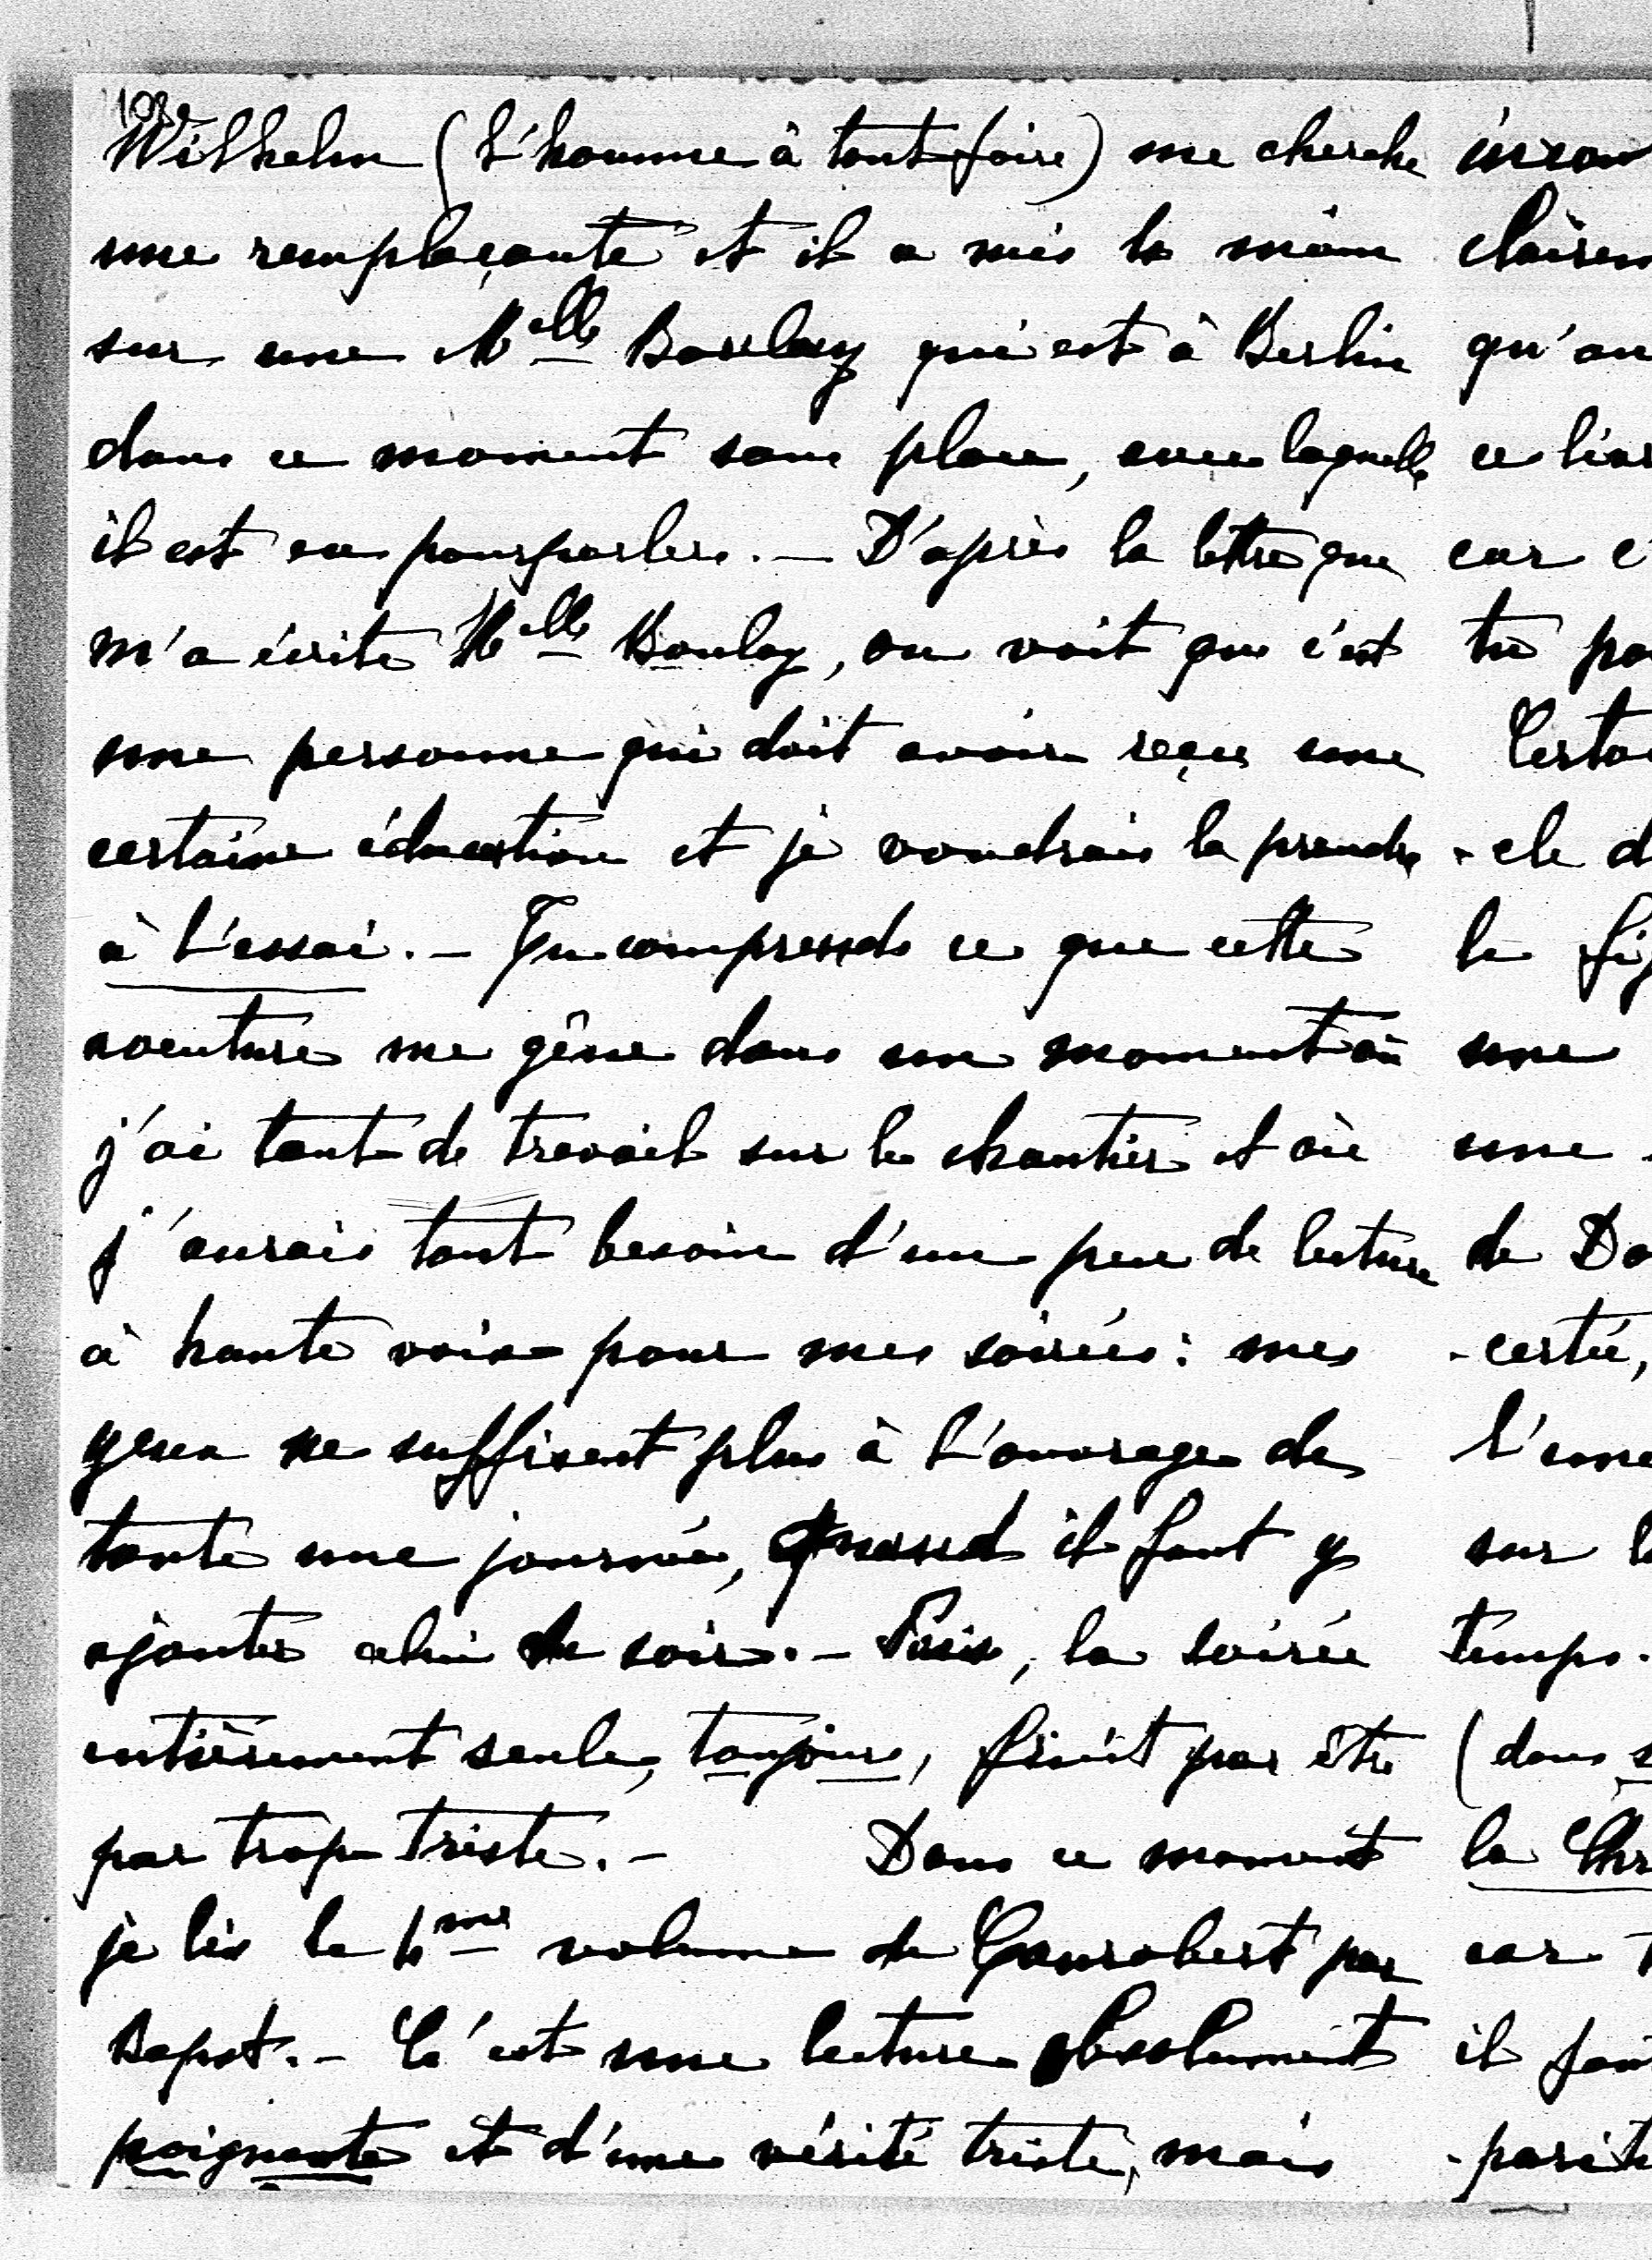 108
Wilhelm (l'homme à tout faire) me cherche
une remplaçante et il a mis la main
sur une Melle Boulay qui est à Berlin
dans ce moment sans place, avec laquelle
il est en pourparlers. — D'après la lettre que
m'a écrite Melle Boulay, on voit que c'est
une personne qui doit avoir reçu une
certaine éducation et je voudrais la prendre
à l'essai. — Tu comprends ce que cette
aventure me gêne dans un moment où
j'ai tant de travail sur le chantier et où
j'aurais tant besoin d'un peu de lecture
à haute voix pour mes soirées : mes
yeux ne suffisent plus à l'ouvrage de
toute une journée, quand il faut y
ajouter celui du soir. — Puis, la soirée
entièrement seule, toujours, finit par être
par trop triste. — Dans ce moment
je lis le 4me volume de Canrobert par
Bapst. — C'est une lecture absolument
poignante et d'une vérité triste, mais
qu'on
car c'
une
une
de
-certé,
l'une
sur
temps.
(dans
la
car
il